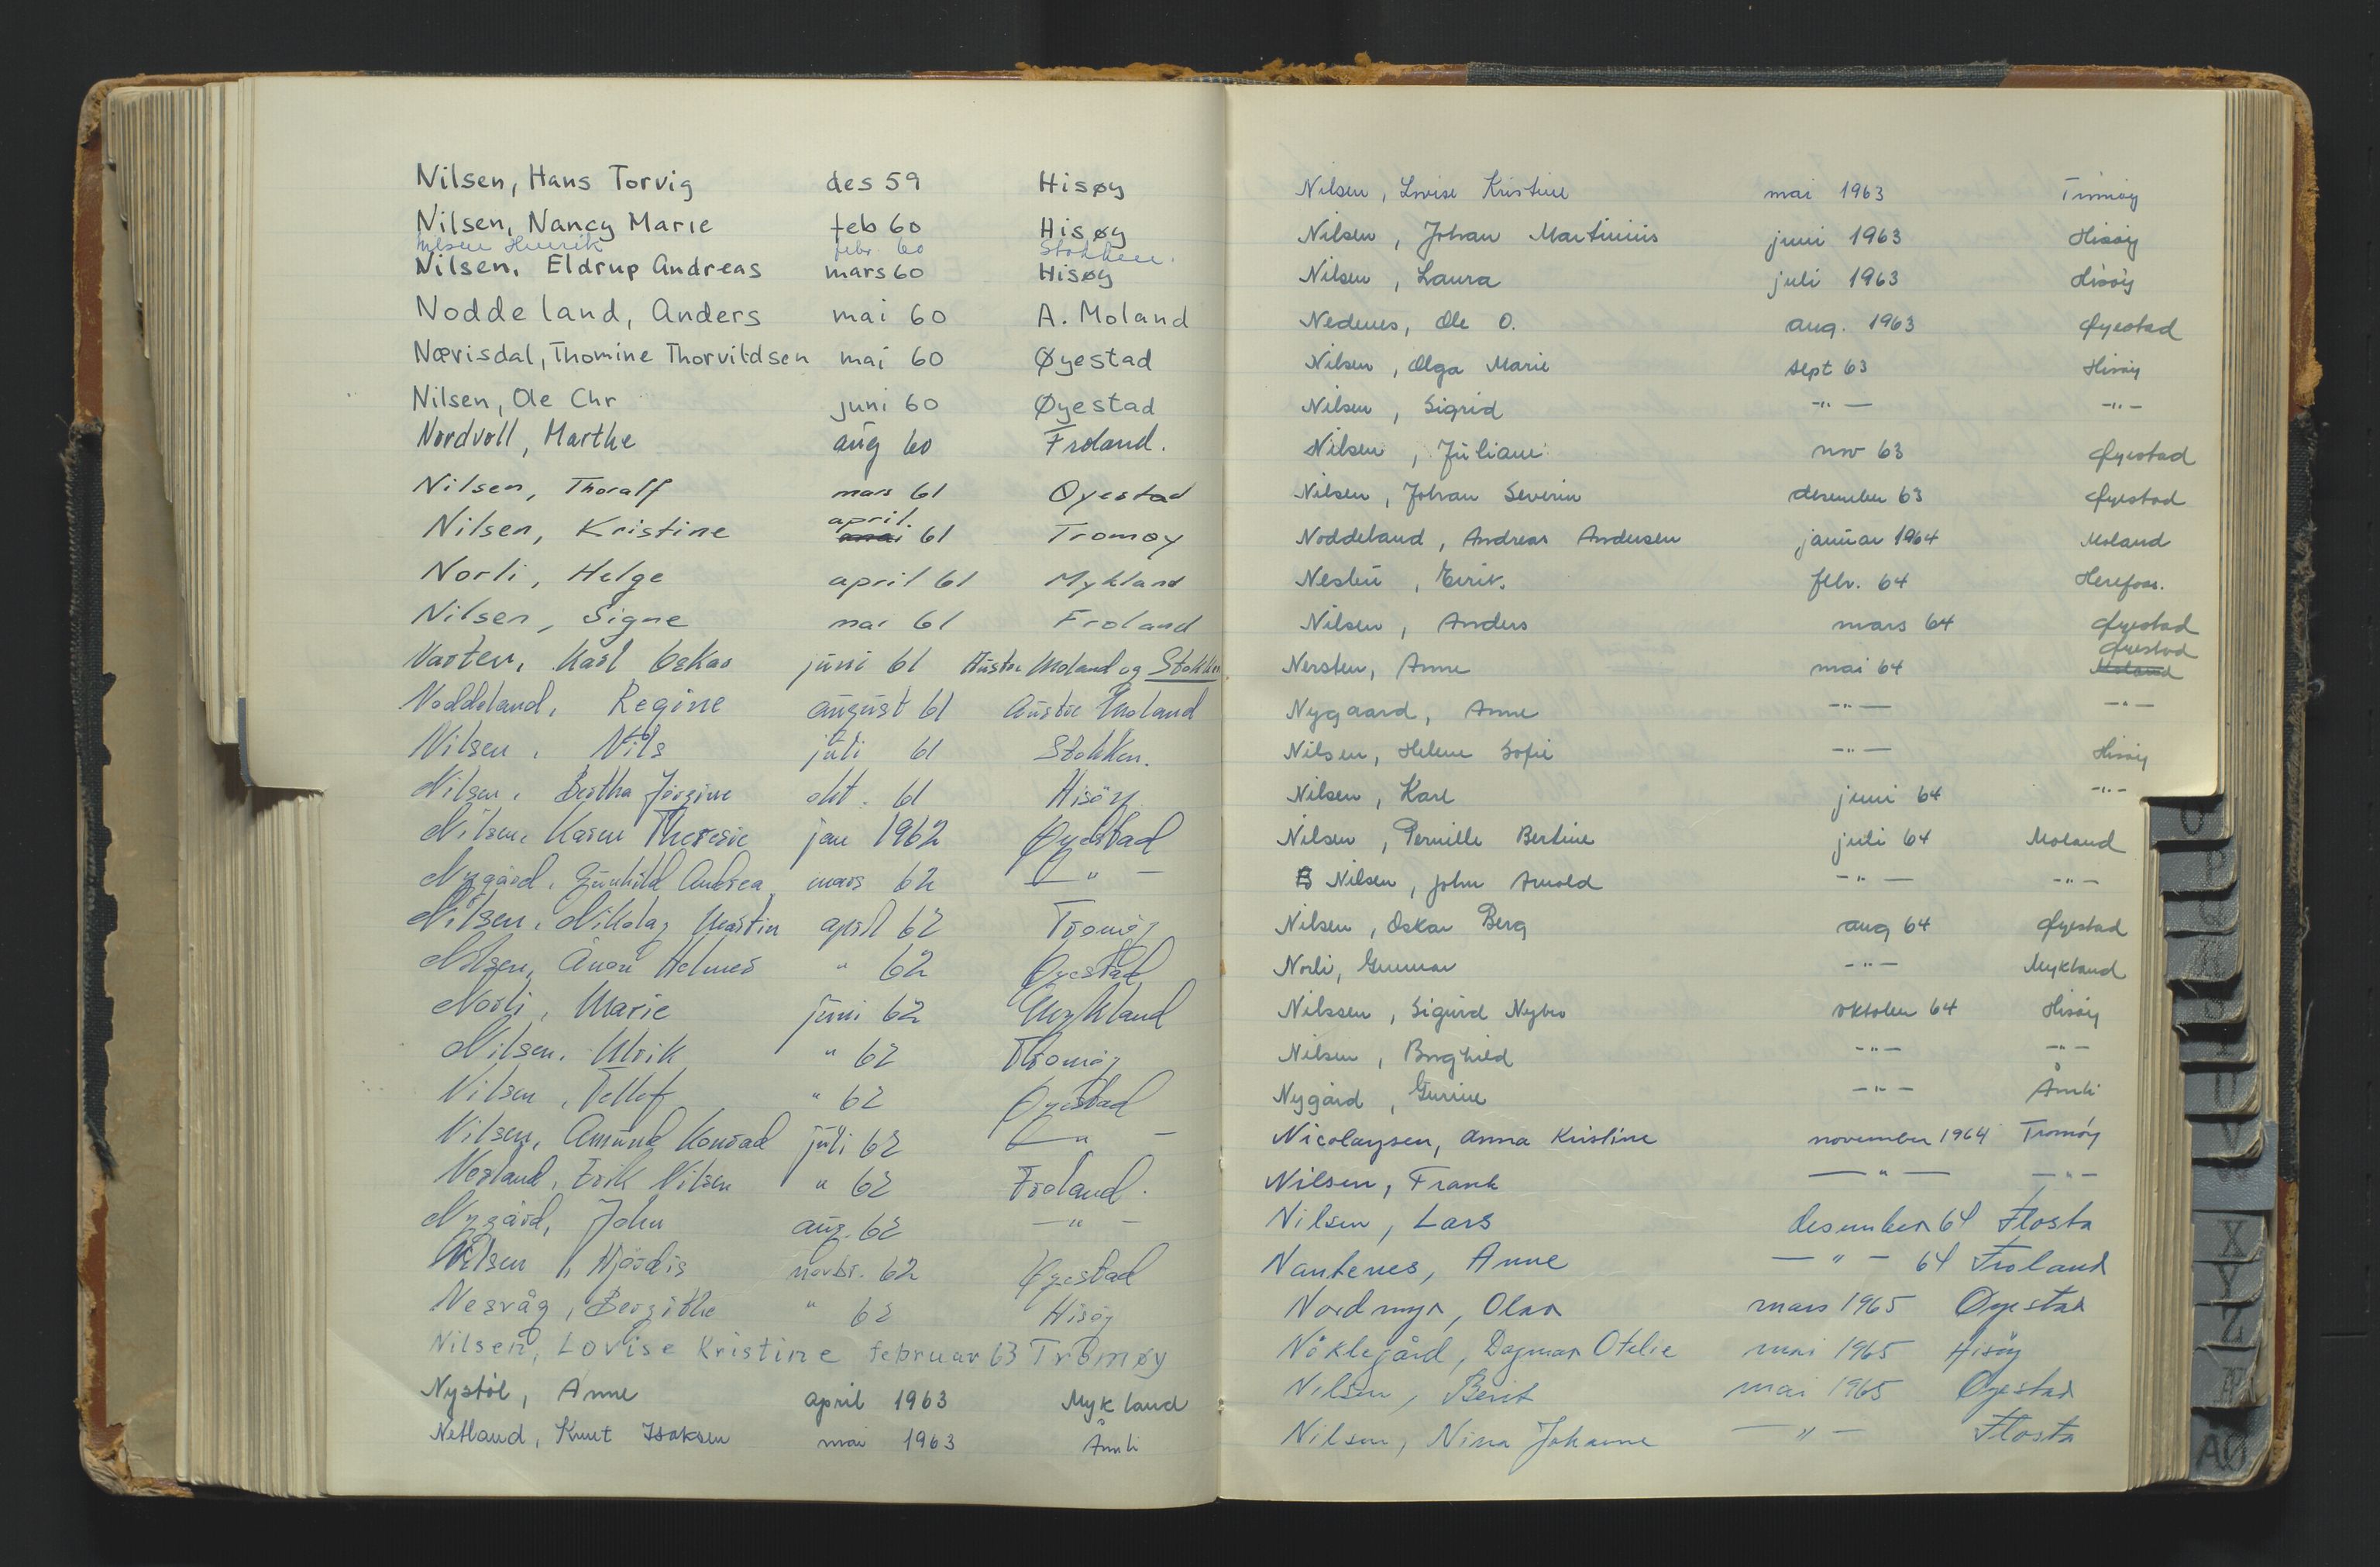 Nilsen, Hans Torvig des 59 Hisøy
Nilsen, Nancy Marie feb 60 Hisøy
Nilsen Henrik febr. 60 Stokken.
Nilsen, Eldrup Andreas mars 60 Hisøy
Noddeland, Anders mai 60 A. Moland
Nærisdal, Thomine Thorvildsen mai 60 Øyestad
Nilsen, Ole Chr juni 60 Øyestad
Nordvoll, Marthe aug 60 Froland.
Nilsen, Thoralf mars 61 Øyestad
april.
Nilsen, Kristine mai 61 Tromøy
Norli, Helge april 61 Mykland
Nilsen, Signe mai 61 Froland
Narten, Karl Oskar juni 61 Austre Moland og Stokken
Noddeland, Regine august 61 Austre Moland
Nilsen, Nils juli 61 Stokken.
Nilsen, Bertha Jörgine okt. 61 Hisöy
Nilsen, Karen Theresie jan 1962 Øyestad
Nygård, Gunhild Andrea mars 62 — " —
Nilsen, Nikolay Martin april 62 Tromöy
Nilsen, Anon Helmer " 62 Øyestad
Norli, Marie juni 62 Mykland
Nilsen, Ulrik " 62 Tromöy
Nilsen, Tellef " 62 Øyestad
Nilsen, Amund Konrad juli 62 — " —
Nesland, Erik Nilsen " 62 Froland.
Nygård, John aug. 62 — " —
Nilsen, Hjördis novbr. 62 Øyestad
Nesvåg, Bergithe " 62 Hisöy
Nilsen, Lovise Kristine februar 63 Tromøy
Nystöl, Anne april 1963 Mykland
Netland, Knut Isaksen mai 1963 Åmli
Nilsen, Lovise Kristine mai 1963 Tromöy
Nilsen, Johan Martinius juni 1963 Hisöy
Nilsen, Laura juli 1963 Hisöy
Nedenes, Ole O. aug. 1963 Øyestad
Nilsen, Olga Marie sept 63 Hisöy
Nilsen, Sigrid —"— —"—
Nilsen, Juliane nov 63 Øyestad
Nilsen, Johan Severin desember 63 Øyestad
Noddeland, Andreas Andersen januar 1964 Moland
Nesbu, Eirik. febr. 64 Herefoss.
Nilsen, Anders mars 64 Øyestad
Øyestad
Nersten, Anne mai 64 Moland
Nygaard, Anne —"— —"—
Nilsen, Helene Sofie —"— Hisöy
Nilsen, Karl juni 64 —"—
Nilsen, Pernille Bertine juli 64 Moland
Nilsen, John Arnold —"— —"—
Nilsen, Oskar Berg aug 64 Øyestad
Norli, Gunnar —"— Mykland
Nilssen, Sigurd Nybro oktober 64 Hisöy
Nilsen, Borghild —"— —"—
Nygård, Gurine —"— Åmli
Nicolaysen, Anna Kristine november 1964 Tromöy
Nilsen, Frank —"— —"—
Nilsen, Lars desember 64 Flosta
Nautenes, Anne — " — 64 Froland
Nordmyr, Olav mars 1965 Øyestad
Nöklegård, Dagmar Otelie mai 1965 Hisöy
Nilsen, Berit mai 1965 Øyestad
Nilsen, Nina Johanne — " — Flosta
O
P
Q
R
S
T
U
V
W
X
Y
Z
Æ
AØ